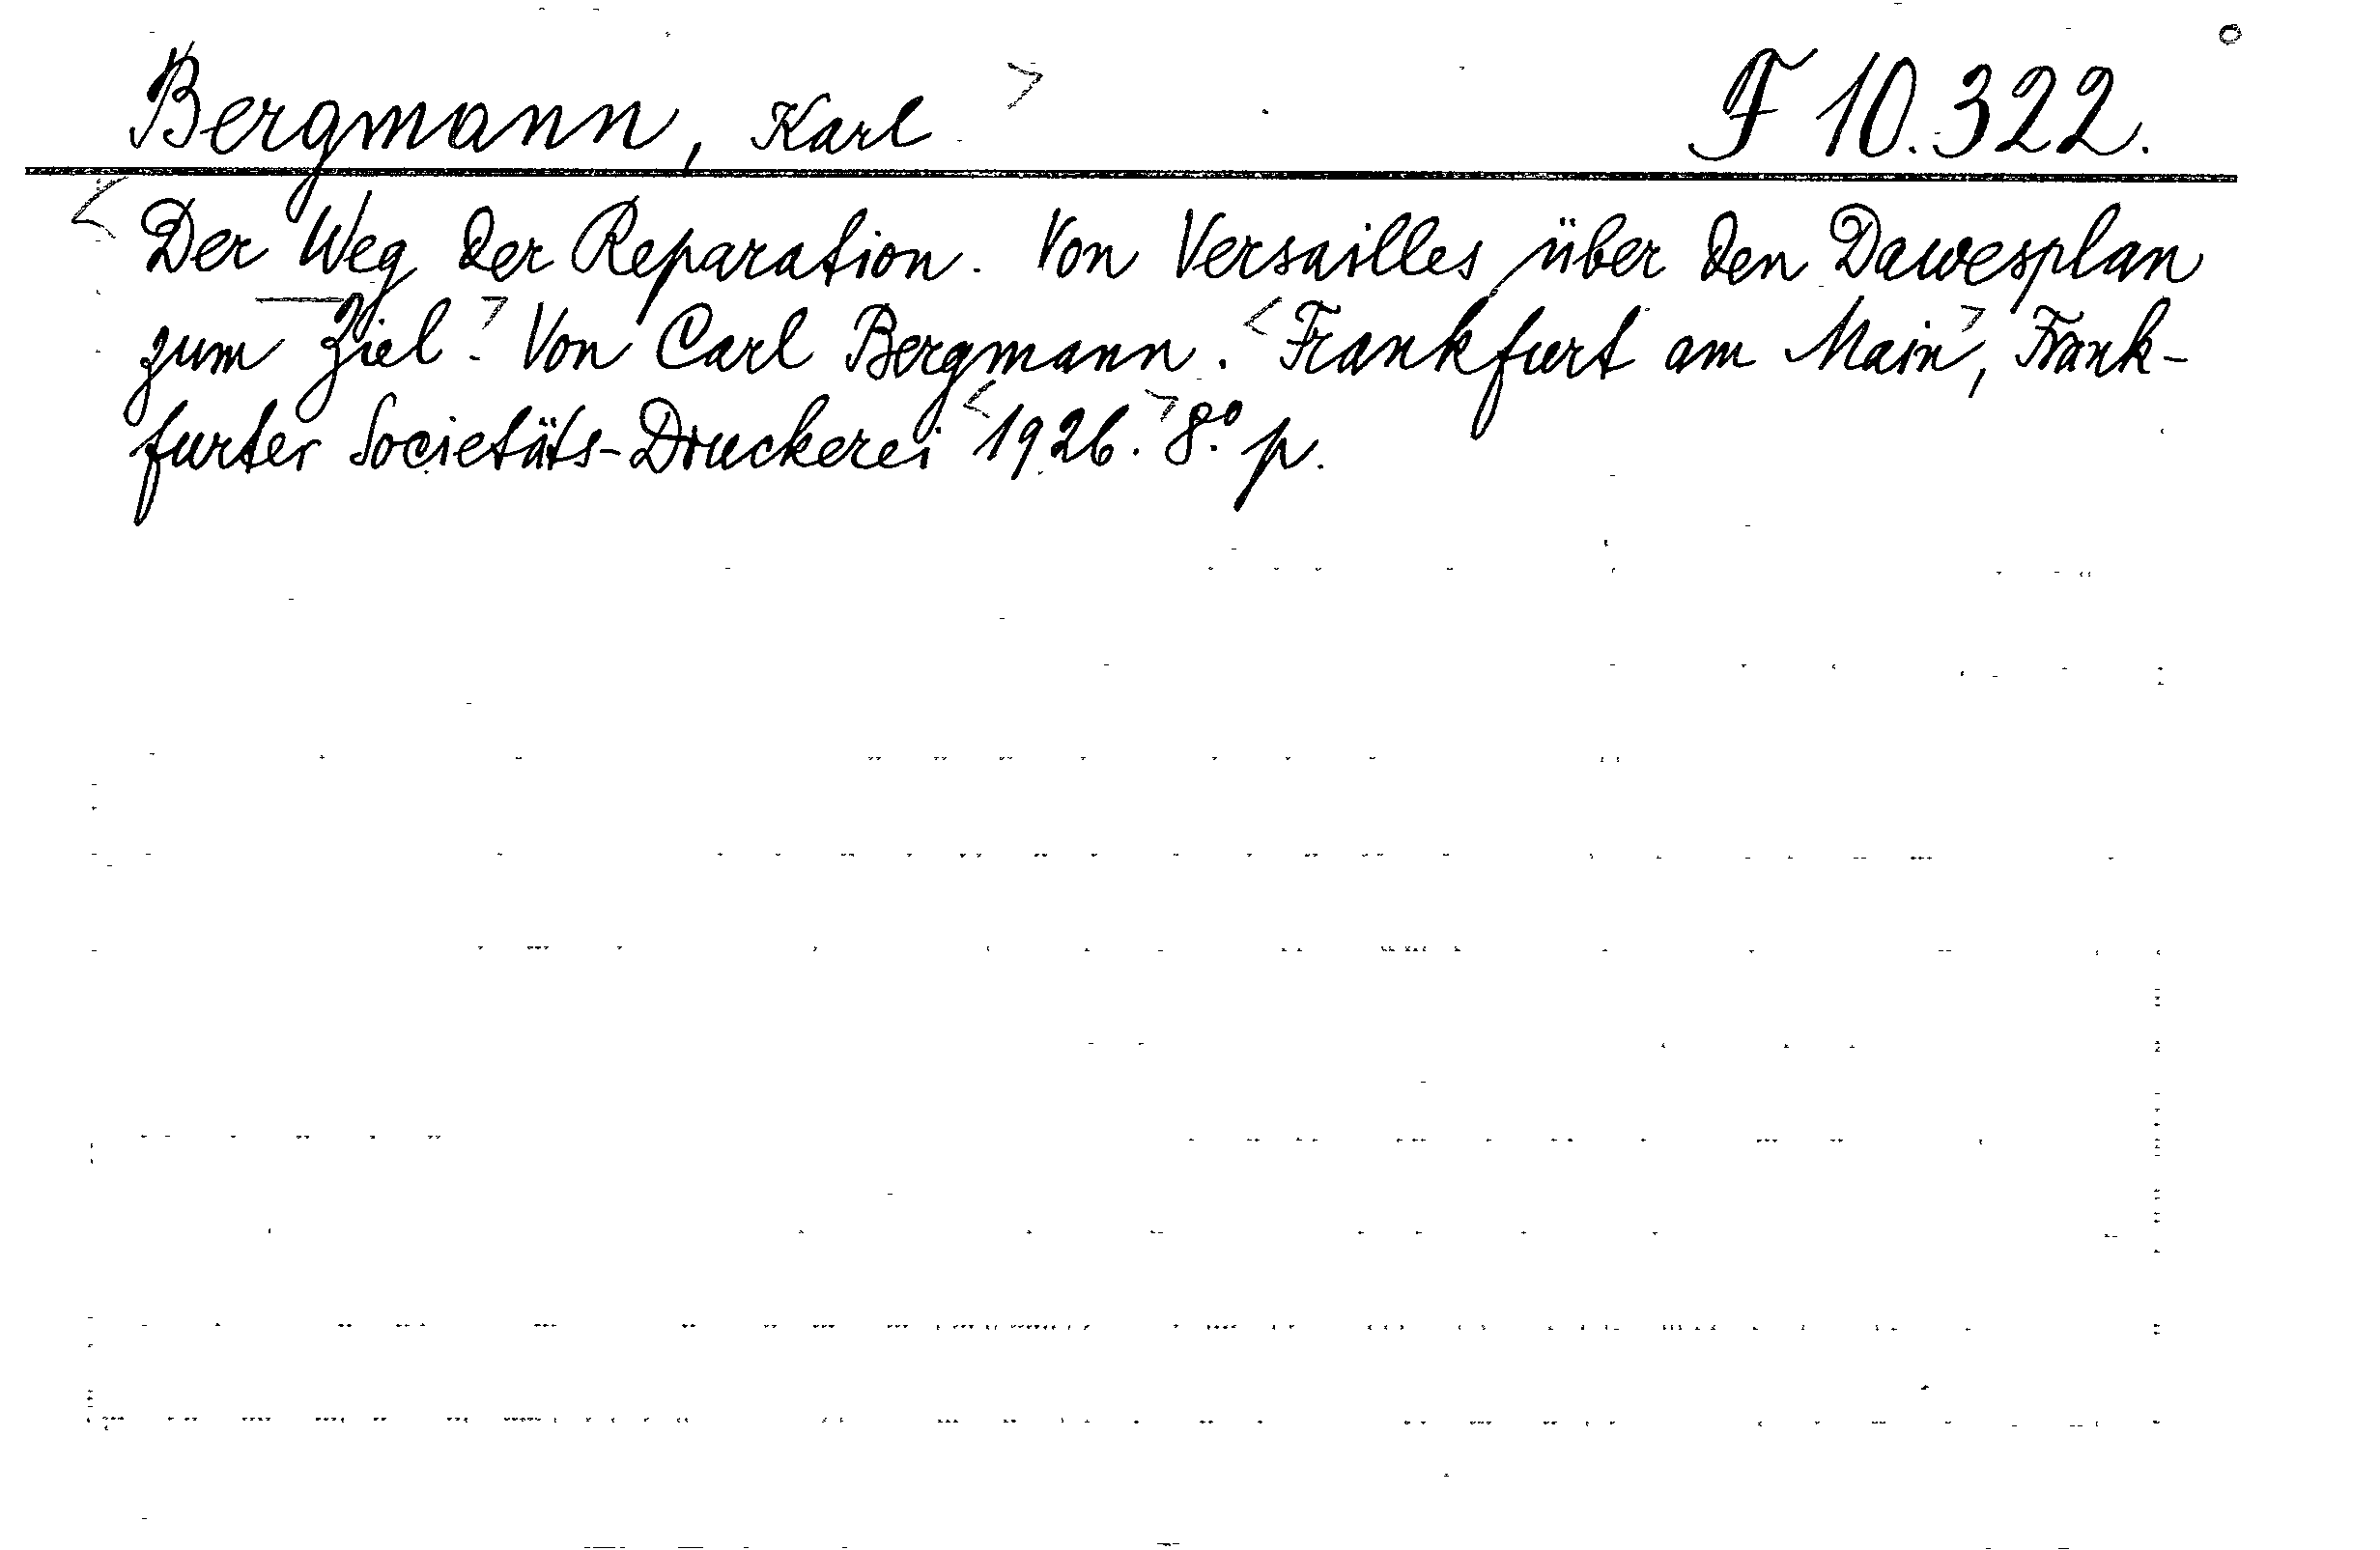 Bergmann, Karl > F 10.322.
< Der Weg der Reparation. Von Versailles über den Dawesplan
zum Ziel.> Von Carl Bergmann. <Frankfurt am Main>, Frank-
furter Societäts-Druckerei <1926.> 8.º p.